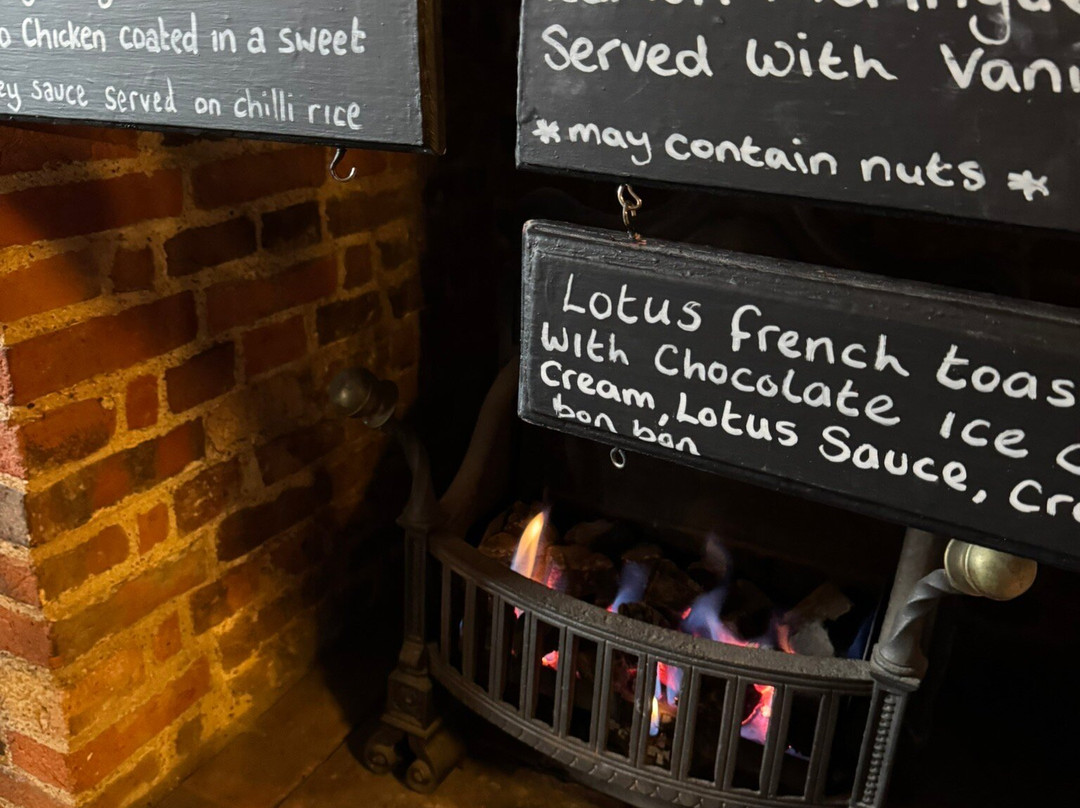 Chicken coated in a sweet
sauce served on chilli rice
Served with
*may contain nuts *
Lotus french
with Chocolate Ice
cream, Lotus Sauce,
bon bon